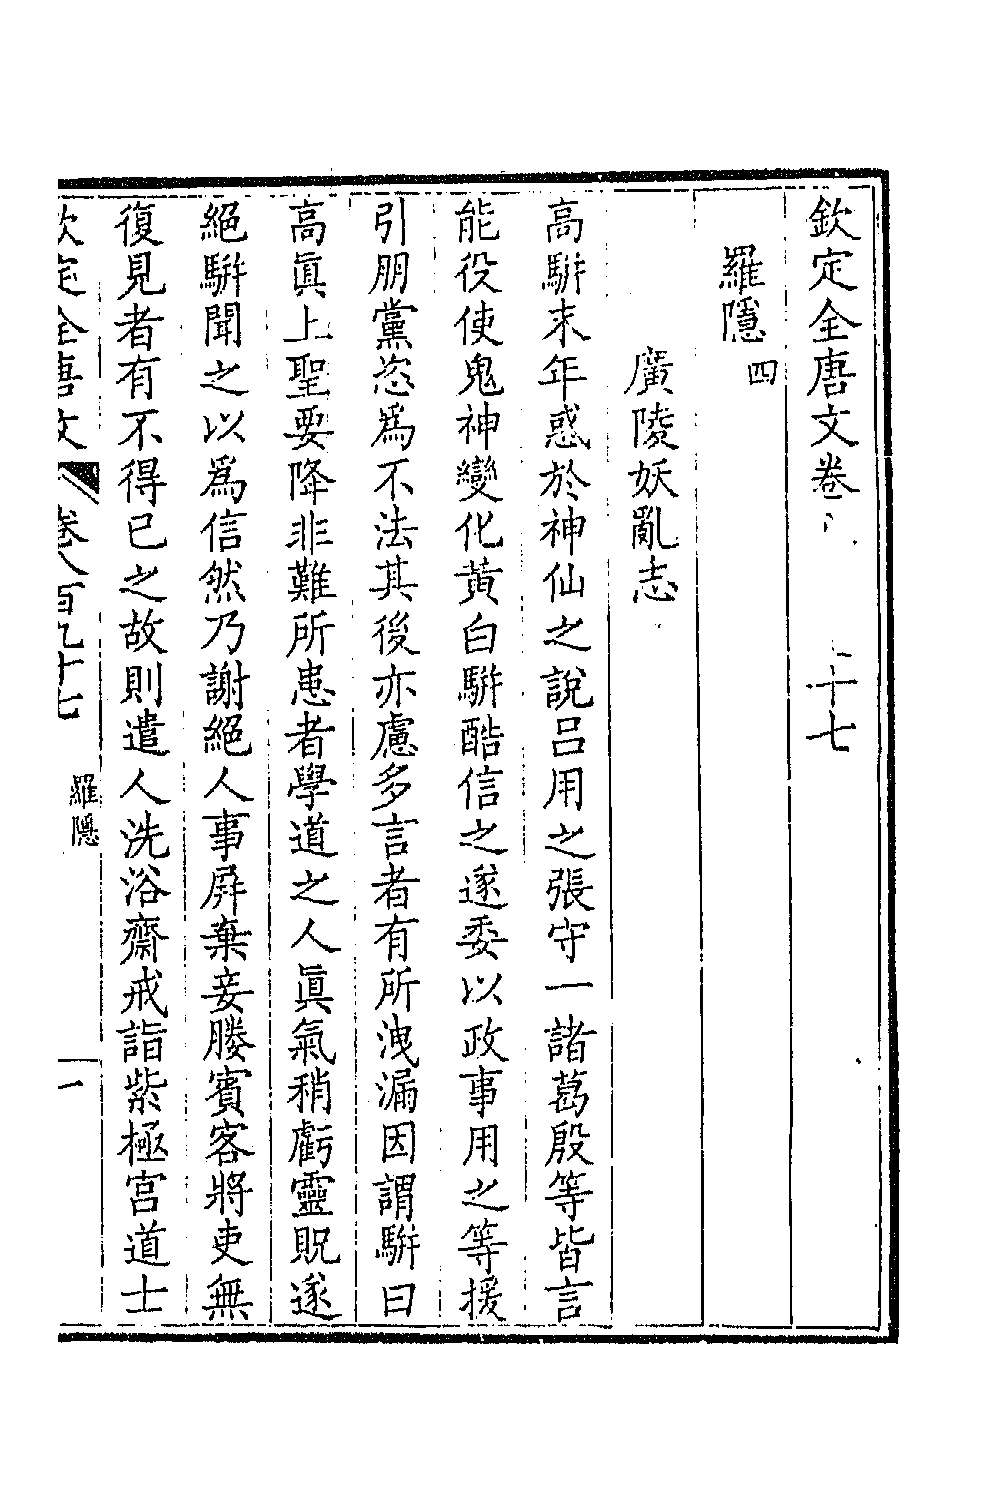 欽定全唐文卷十七
羅隱四
廣陵妖亂志
高駢末年惑於神仙之說呂用之張守一諸葛殷等皆言
能役使鬼神變化黃白駢酷信之遂委以政事用之等援
引朋黨恣為不法其後亦慮多言者有所洩漏因謂駢曰
高眞上聖要降非難所患者學道之人眞氣稍虧靈貺遂
絕駢聞之以為信然乃謝絕人事屏棄妾媵賓客將吏無
復見者有不得已之故則遣人洗浴齋戒詣紫極宫道士
欽定全唐文 卷八百九十七 羅隱 一